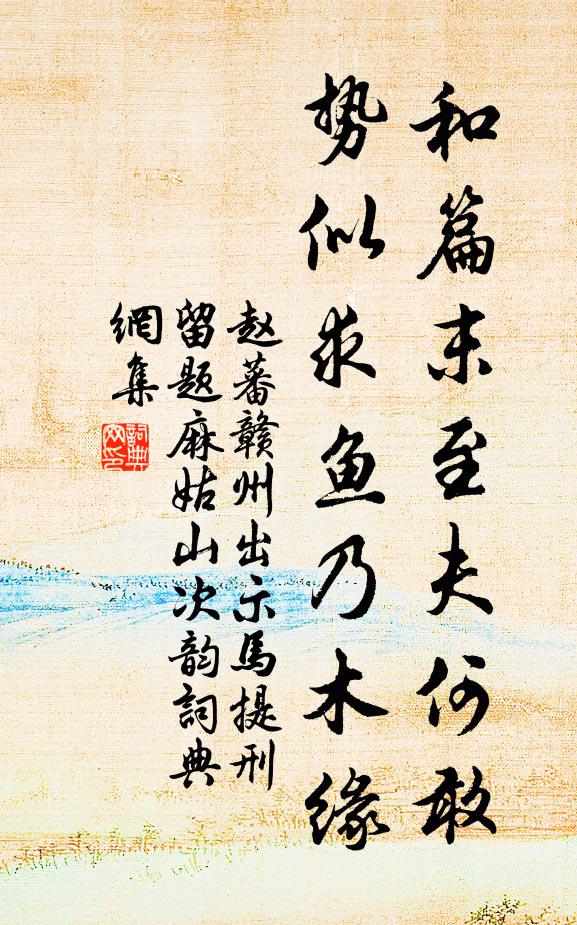 和篇末至夫何敢
势似求鱼乃木缘
赵蕃赣州出示马提刑
留题麻姑山次韵詞典
網集
詞典